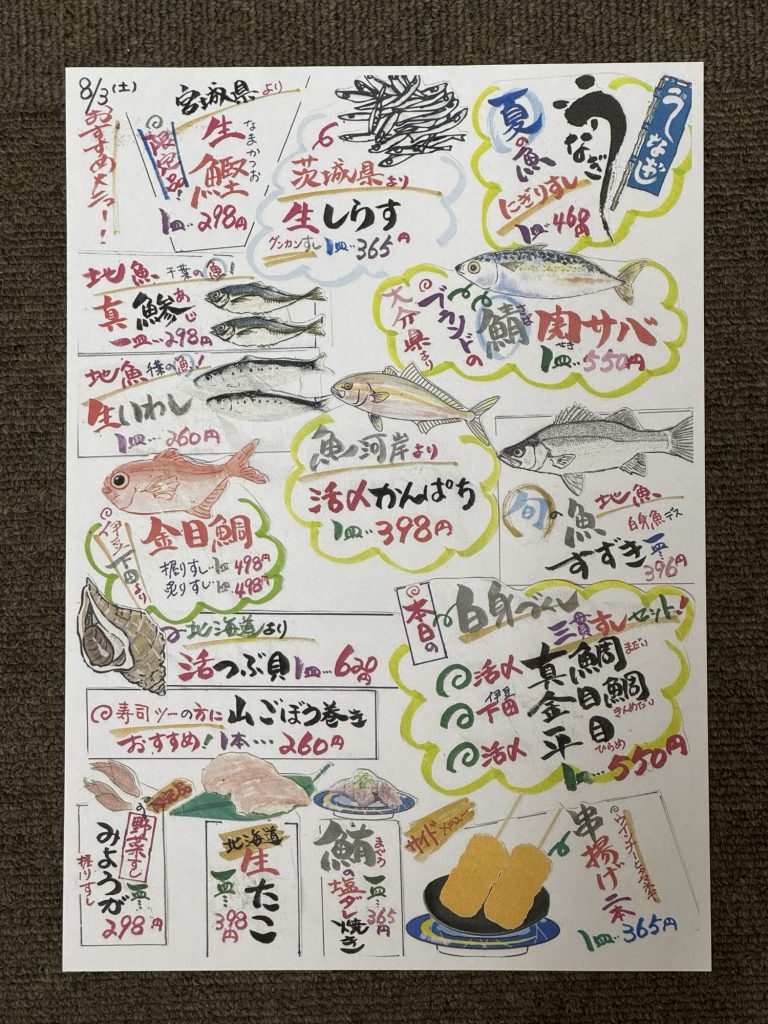 8/3(土)
おすすめメニュー!!
宮城県より
限定品!
生鰹
なまかつお
1皿‥298円
茨城県より
生しらす
グンカンすし1皿‥365円
夏の魚
うなぎ
うなぎ
にぎりずし
1皿‥468円
地魚 千葉の魚!
真鯵
あじ
一皿‥298円
大分県より
ブランドの
鯖
さば
関サバ
せき
1皿‥550円
地魚 千葉の魚!
生いわし
1皿‥260円
魚河岸より
活〆かんぱち
1皿‥398円
旬の魚
地魚
白身魚デス
すずき
一皿‥396円
伊豆下田より
金目鯛
握りすし‥1皿498円
炙りすし‥1皿498円
北海道より
活つぶ貝1皿‥620円
本日の
白身づくし
三貫すしセット!
活〆真鯛
まだい
伊豆下田金目鯛
きんめだい
活〆平目
ひらめ
1皿‥550円
寿司ツーの方に山ごぼう巻き
おすすめ!1本‥‥260円
限定品
の
野菜すし
みょうが
握りすし
一皿‥298円
北海道
生たこ
一皿‥398円
鮪の塩ダレ焼き
まぐろ
一皿‥365円
サイドメニュー
串揚げ二本
1皿‥365円